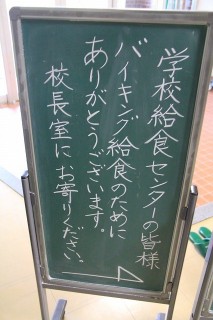 学校給食センターの皆様
バイキング給食のために
ありがとうございます。
校長室にお寄りください。